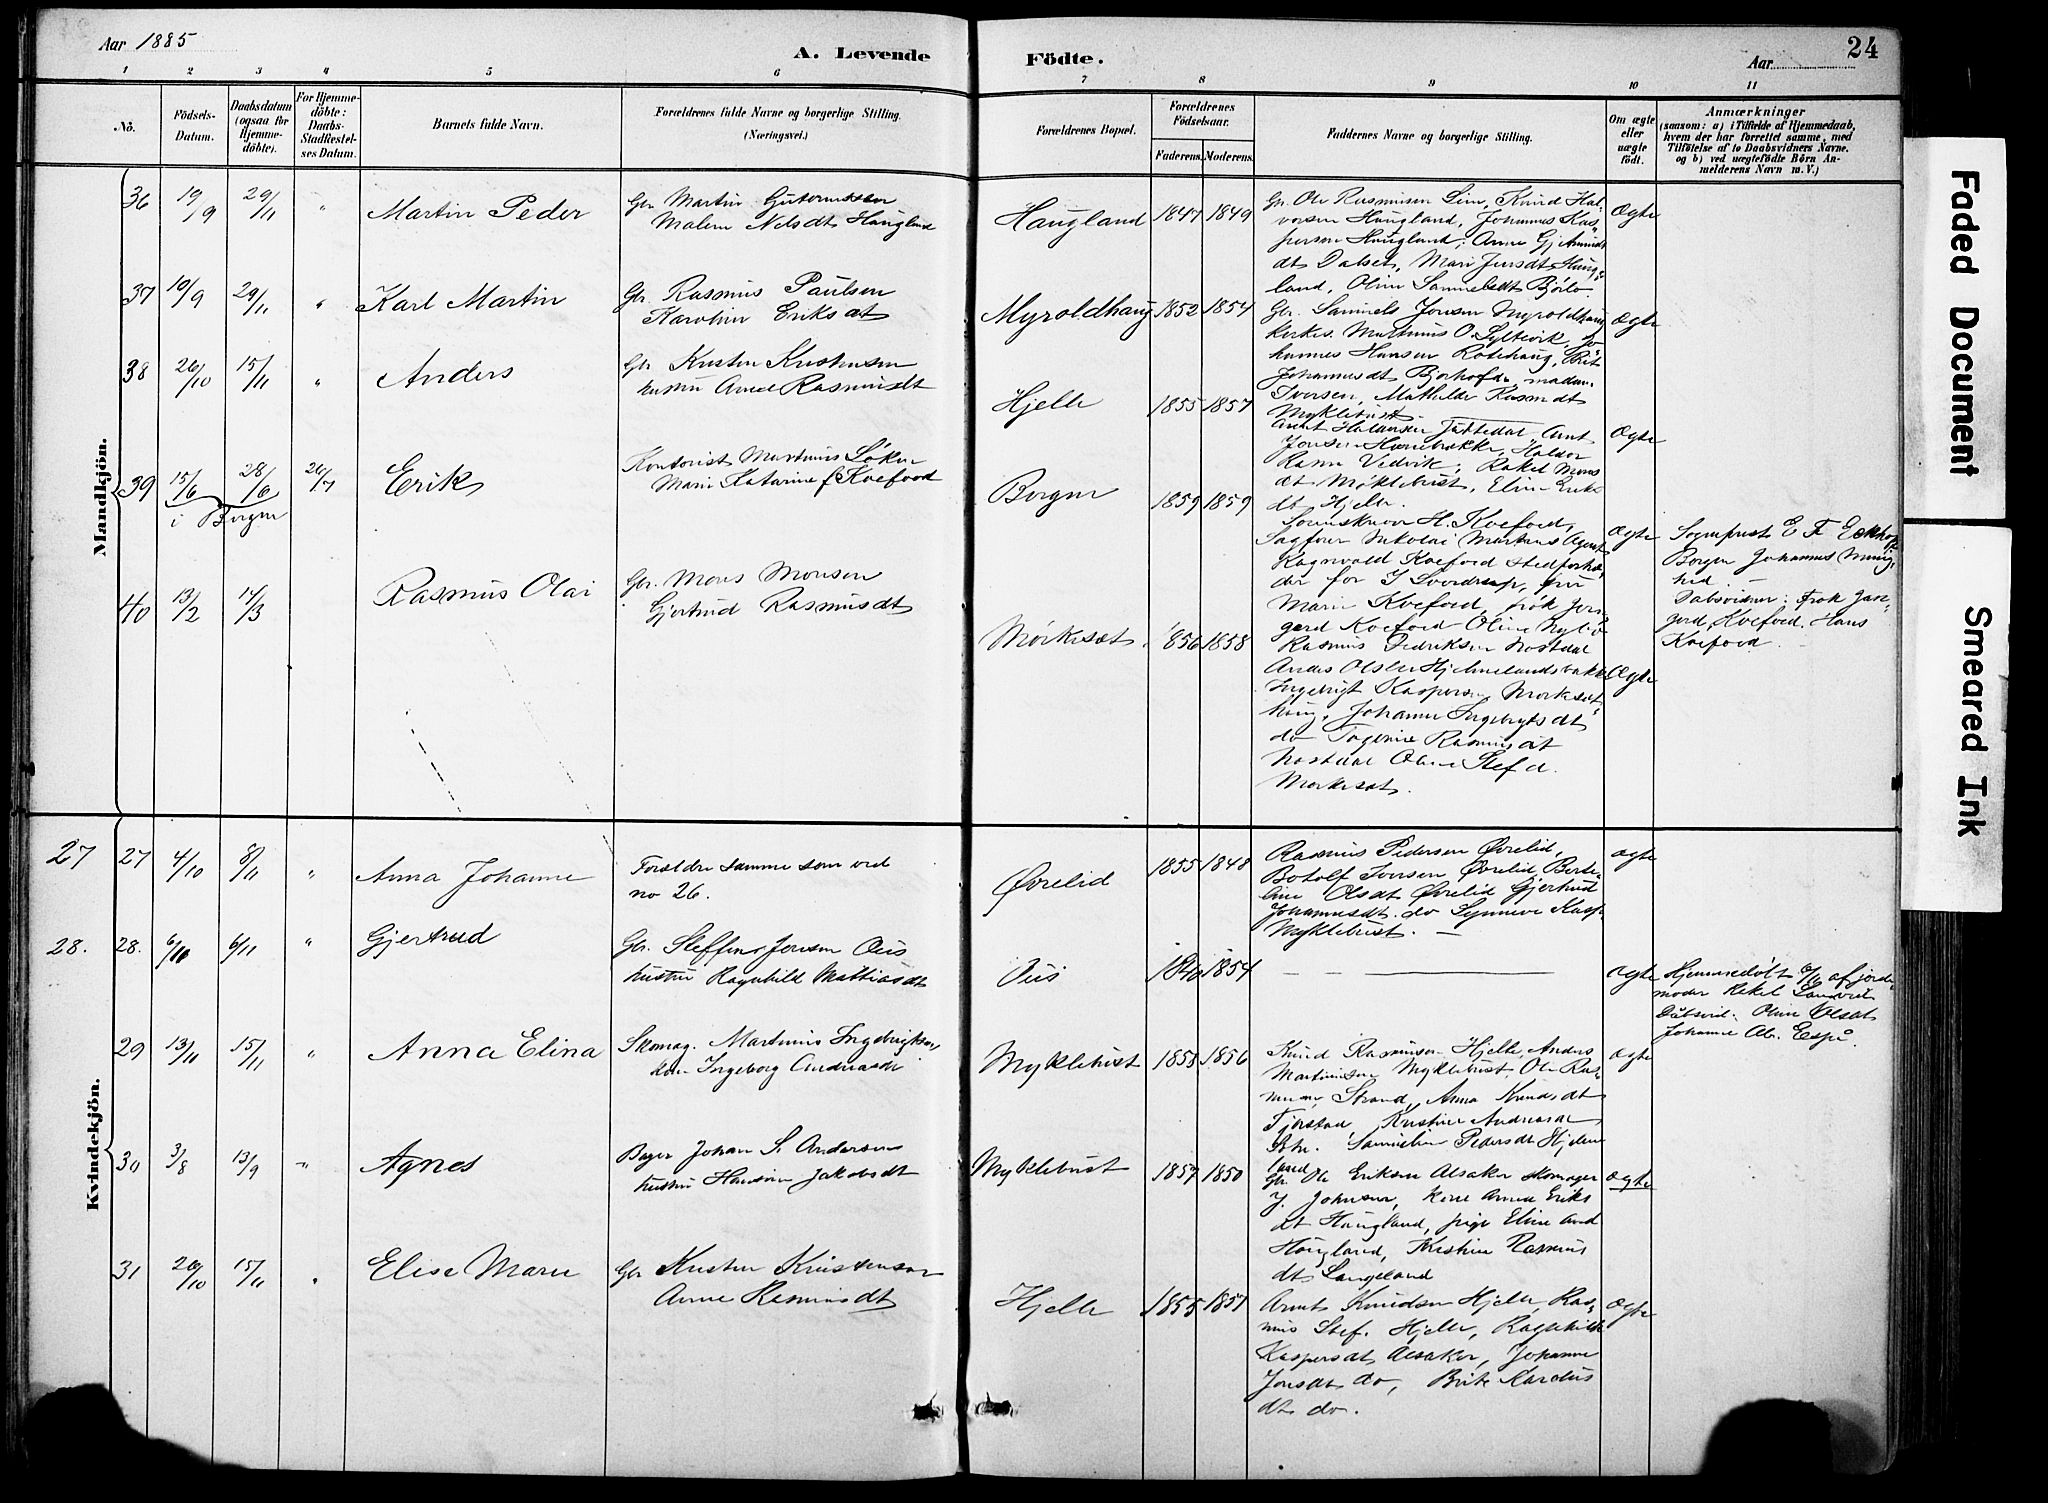 Aar 1885
A. Levende
Födte.
Aar
24
1 2 3 4 5 6 7 8 9 10 11
No.
Födsels-
Datum.
Daabsdatum
(ogsaa for
Hjemme-
döbte).
For Hjemme-
döbte:
Daabs-
Stadfæstel-
ses Datum.
Barnets fulde Navn.
Forældrenes fulde Navne og borgerlige Stilling.
(Næringsvei.)
Forældrenes Bopæl.
Forældrenes
Födselsaar.
Faderens. Moderens.
Faddernes Navne og borgerlige Stilling.
Om ægte
eller
uægte
födt.
Anmærkninger
(saasom: a) i Tilfælde af Hjemmedaab,
hvem der har forrettet samme, med
Tilföielse af to Daabsvidners Navne.
og b) ved uægtefödte Börn An-
melderens Navn m. V.)
Mandkjön.
36 19/9 29/11 " Martin Peder
Gbr Martin Guttormssen
Malene Nelsdt Haugland
Haugland 1847 1849
Gbr. Ole Rasmussen Lim, Knud Hal-
vorsen Haugland, Johannes Kas-
persen Haugland, Anne Gj
dt Dalset, Mari Jensdt Haug-
land, Oline
Ægte
37 10/9 29/11 " Karl Martin
Gbr. Rasmus Paulsen
Karoline Eriksdt
Myroldhaug 1852 1854
Gbr. Samuels Jonsen Myroldhaug
O. Syltevik, Jo-
hannes Hansen Rotihaug, Brit
Johannesdt madam
Iversen, Mathilde Rasmdt
Myklebust
ægte
38 26/10 15/11 " Anders
Gbr Kristen Kristensen
hustru Anne Rasmusdt
Hjelle 1855 1857
Arnt
Jonsen Haldor
Vedvik, Rakel Mons
dt Myklebust, Eline Eriks
dt Hjelle.
Ægte
39 15/6 28/6 26/7 Erik
i Bergen
Kontorist Martinus Løken
Marie Katarine f Koefoed
Bergen 1859 1859
Sorenskriver H. Koefoed,
Sagfører Nikolai Martens Agent
Ragnvald Koefoed Stedforhæ-
der for J Sverdrup, fru
Marie Koefoed, frøk Jens-
gerd Koefoed Oline Nybø
Ægte
Sognepræst E F Eckhoff
Bergen Johannes
Dabsvidner: Frøk Jæn-
gerd Koefoed. Hans
Koefoed.
40 13/2 14/3 Rasmus Olai
Gbr. Mons Monsen
Gjertrud Rasmusdt
Mørkesæt. 1856 1858
Rasmus Fedriksen Nostdal
Anders Olsen Hjelmelandsbakke
Ingebrigt Kaspersen Morkesæt
haug, Johanne Ingebrigtsdt
do Rasmusdt
Nostdal Oline Stef d.
Morkesæt.
Ægte
Kvindekjön.
27 27 4/10 8/11 " Anna Johanne
Forældre samme som ved
no 26.
Øvrelid 1855 1848
Rasmus Pedersen Øvrelid,
Botolf Iversen Øvrelid Berte-
line Olsdt Øvrelid Gjertrud
Johannesdt. do Synneve Kasp.
Myklebust. —
ægte
28. 28. 6/11 6/11 " Gjertrud
Gbr. Steffen Jensen Øus
hustru Ragnhild Mattiasdt
Øus 1854
ægte
Hjemmedøbt 6/11 af jorde-
moder Rakel
Dabsvid. Oline Olsdt
Johanne Ab. Espe.
29 13/11 15/11 " Anna Elina
Skomag. Martinus Ingebrigtsen
Ingeborg Andreasdt
Myklebust 1855 1856
Knud Rasmusen Hjelle, Anders
Martinusen Myklebust, Ole Ras-
musen Strand, Anna Knudsdt
Tjørstad, Kristine Andreasdt
Samueline Pedersdt Hjelme
land
ægte
30 3/8 13/9 " Agnes
Bager Johan S. Andersen
hustru Hansine Jakobsdt
Myklebust 1857 1850
Gbr. Ole Eriksen Alsaker skomager
J. Johnsen, Kone Anna Eriks
dt Haugland, pige Eline And
Haugland, Kristine Rasmus
dt Langeland
ægte
31 26/10 15/11 " Elise Marie
Gbr Kristen Kristensen
Anne Rasmusdt
Hjelle 1855 1857
Arnt Knudsen Hjelle, Ras-
mus Stef. Hjelle, Ragnhild
Kaspersdt Alsaker, Johanne
Jonsdt do, Brite Kardus
dt do.
Ægte
Faded Document
Smeared Ink